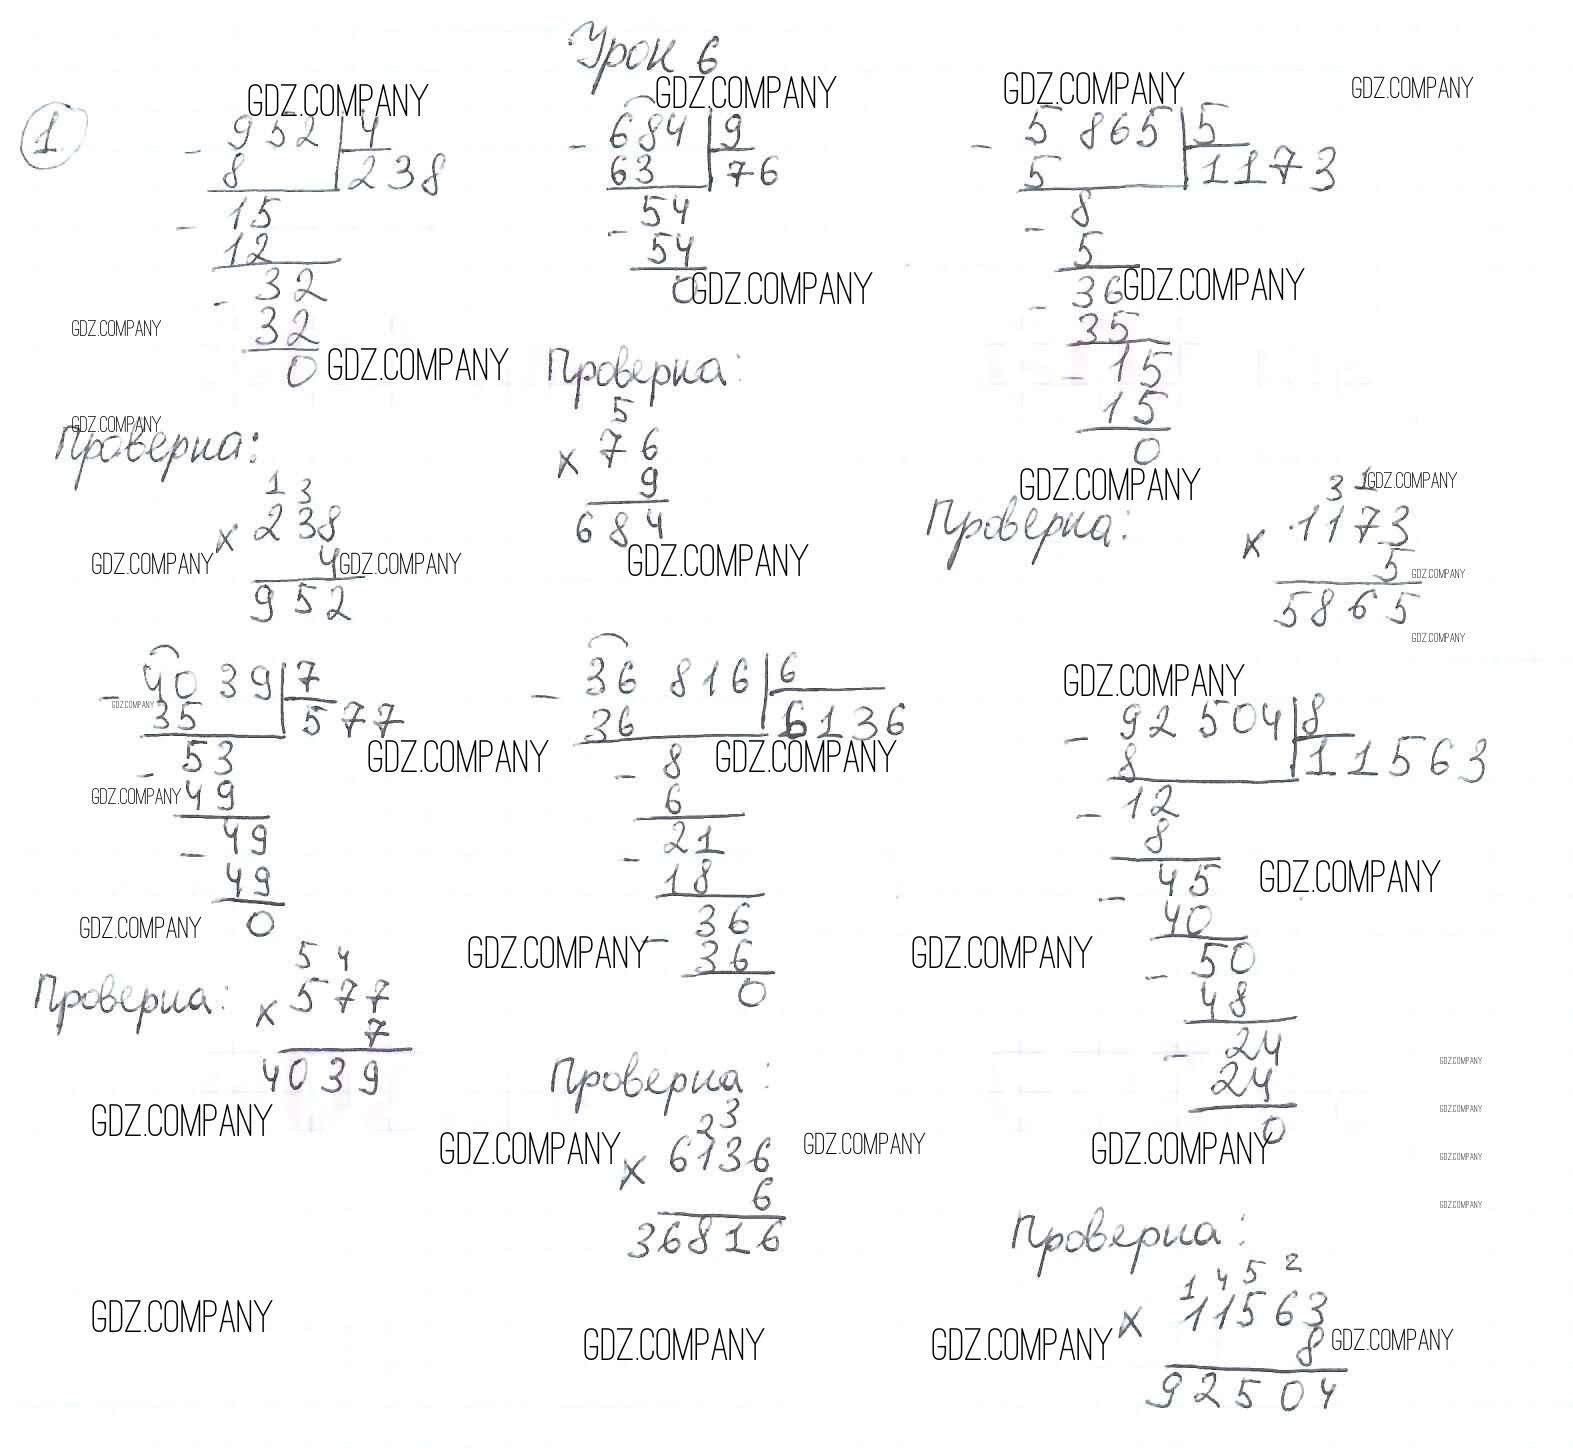 Урок 6
GDZ.COMPANY GDZ.COMPANY GDZ.COMPANY GDZ.COMPANY
1
- 952 | 4
8 | 238
- 15
12
- 32
32
0 GDZ.COMPANY
GDZ.COMPANY
GDZ.COMPANY
Проверка:
1 3
× 238
GDZ.COMPANY 4 GDZ.COMPANY
952
- 684 | 9
63 | 76
- 54
54
0 GDZ.COMPANY
Проверка:
5
× 76
9
684
GDZ.COMPANY
- 5 865 | 5
5 | 1173
- 8
5
- 36 GDZ.COMPANY
35
- 15
15
0
GDZ.COMPANY
Проверка:
3 1 GDZ.COMPANY
× 1173
5 GDZ.COMPANY
5865
GDZ.COMPANY
- 4039 | 7
GDZ.COMPANY
35 | 577
GDZ.COMPANY
- 53
GDZ.COMPANY 49
- 49
49
0
GDZ.COMPANY
5 4
Проверка: × 577
7
4039
GDZ.COMPANY
GDZ.COMPANY
- 36 816 | 6
36 | 6136
GDZ.COMPANY
- 8
6
- 21
18
- 36
GDZ.COMPANY 36
0
Проверка:
2 3
GDZ.COMPANY × 6136 GDZ.COMPANY
6
36816
GDZ.COMPANY
GDZ.COMPANY
- 92 504 | 8
8 | 11563
- 12
8
- 45 GDZ.COMPANY
40
GDZ.COMPANY - 50
48
- 24
24
0
GDZ.COMPANY
GDZ.COMPANY
GDZ.COMPANY
GDZ.COMPANY
GDZ.COMPANY
Проверка:
1 4 5 2
× 11563
GDZ.COMPANY 8 GDZ.COMPANY
92504